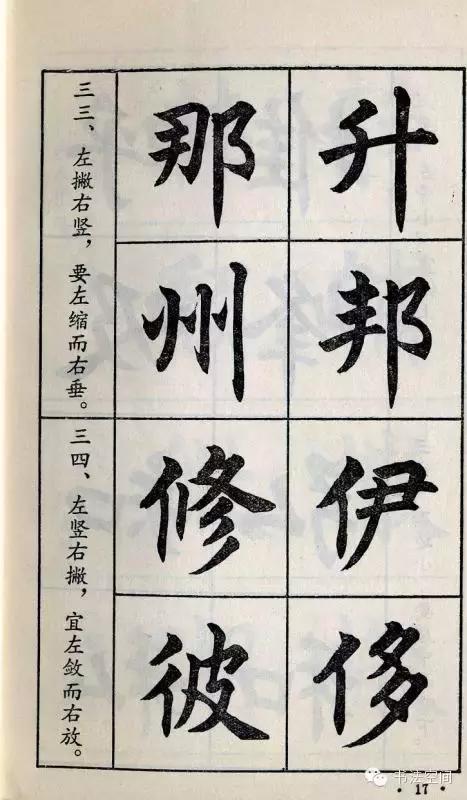 升
邦
伊
侈
那
州
修
彼
三三、左撇右竖，要左缩而右垂。
三四、左竖右撇，宜左敛而右放。
·17·
书法空间